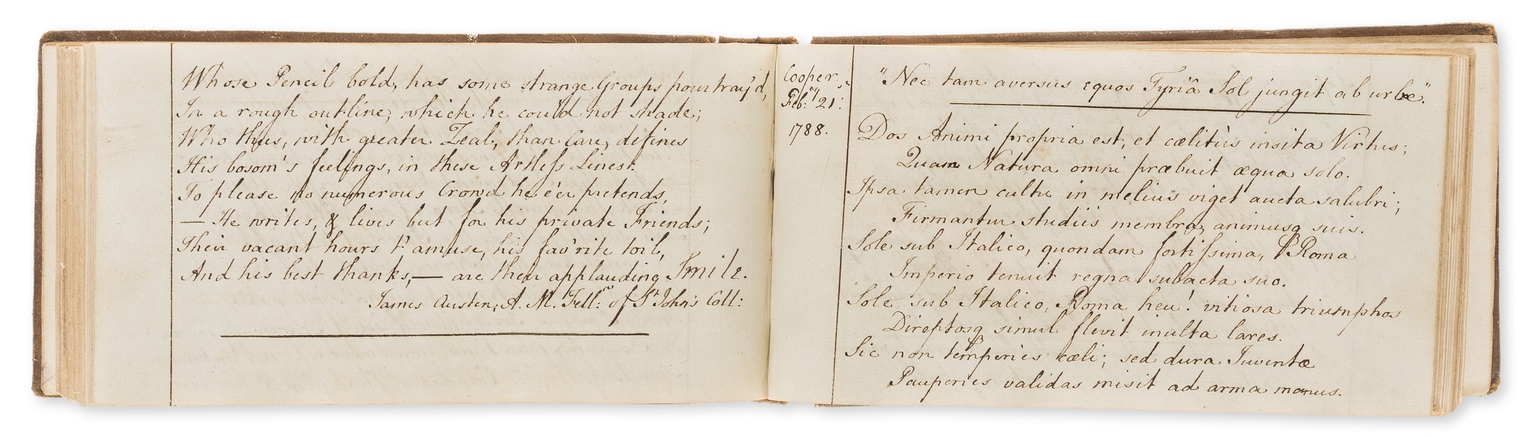 Whose Pencil bold, has some strange Groups pourtray'd,
In a rough outline, which he could not shade;
Who thus, with greater Zeal, than Care, defines
His bosom's feelings, in these Artless Lines.
To please no numerous Crowd he e'er pretends,
— He writes, & lives but for his private Friends;
Their vacant hours t' amuse, his fav'rite toil,
And his best thanks, — are their applauding Smile.
James Austen, A. M. Fell: of St. John's Coll:
Cooper,
Feb: ry 21:
1788.
"Nec tam aversus equos Tyriâ Sol jungit ab urbe".
Dos Animi propria est, et cœlitùs insita Virtus;
Quam Natura omni præbuit æqua solo.
Ipsa tamen cultu in melius viget aucta salubri;
Firmantur studiis membra, animusq suis.
Sole sub Italico, quondam fortissima, Roma
Imperio tenuit regna subacta suo.
Sole sub Italico, Roma heu! vitiosa triumphos
Direptosq simul flevit inulta lares.
Sic non temperies cœli; sed dura Juventæ
Pauperies validas misit ad arma manus.